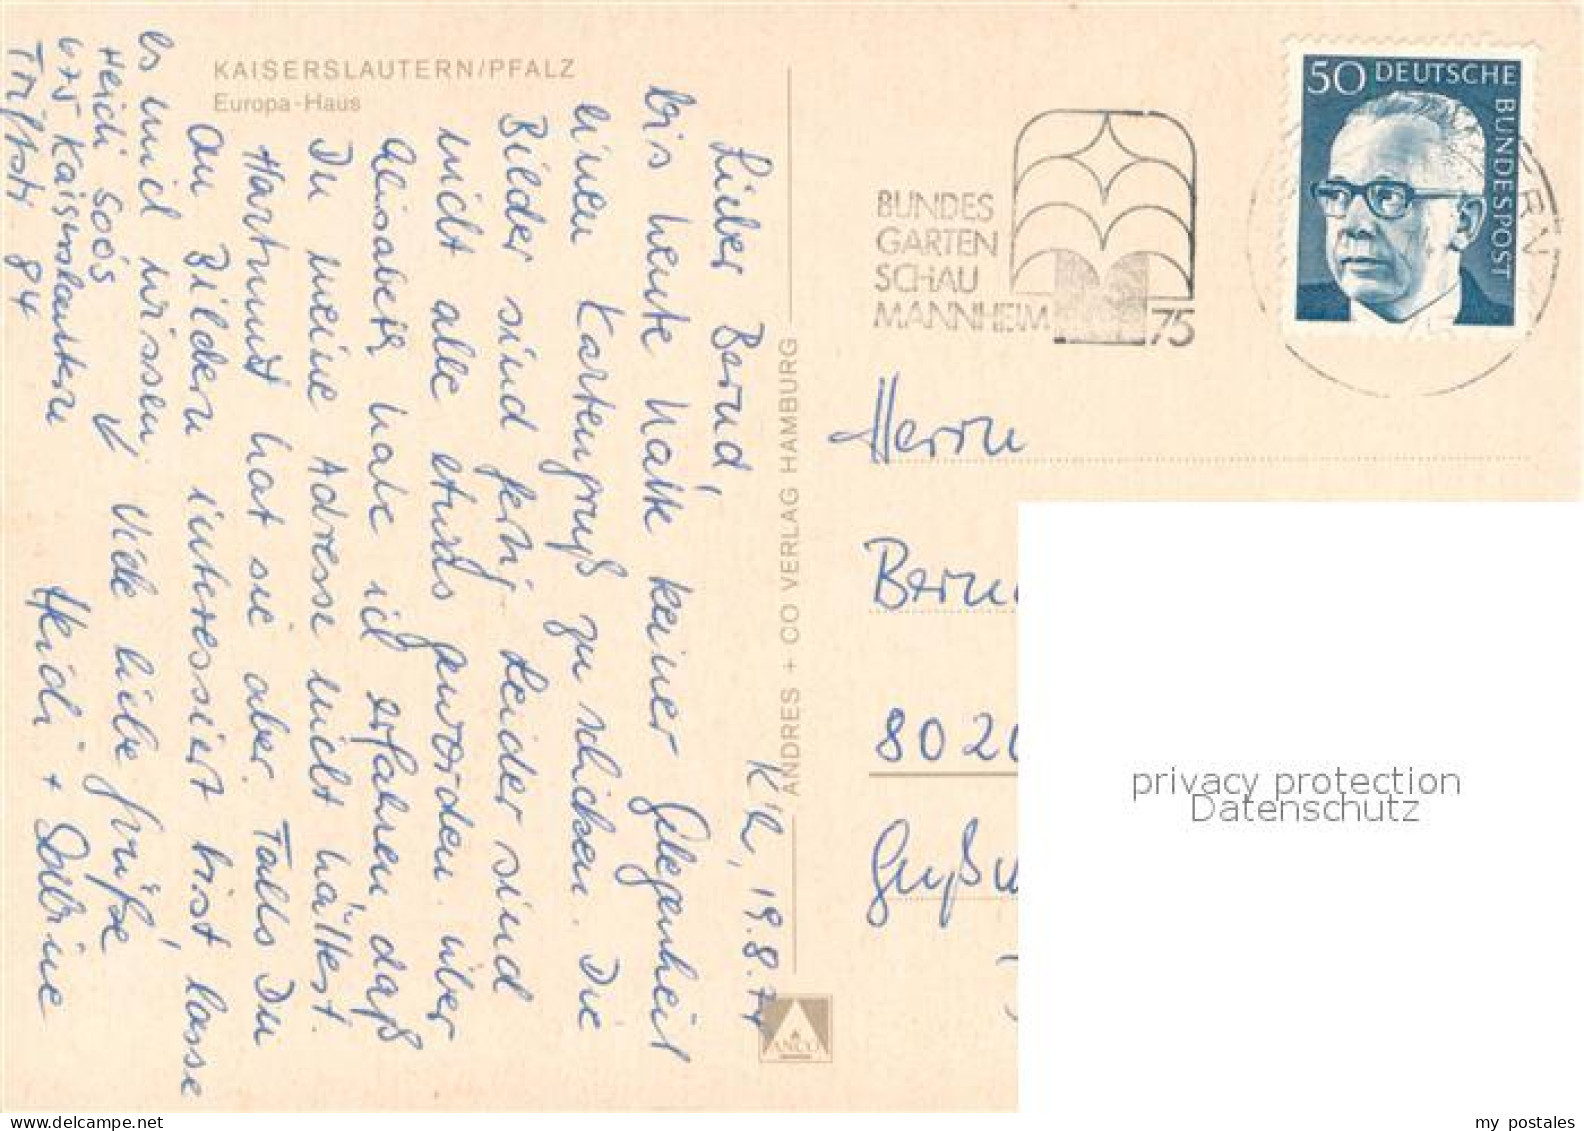 KAISERSLAUTERN/PFALZ
Europa-Haus
K'l, 19.8.74
Lieber Bernd,
bis heute hatte keiner Gelegenheit
einen Kartengruß zu schicken. Die
Bilder sind fertig. Leider sind
nicht alle etwas geworden. über
Elisabeth habe ich erfahren, daß
Du meine Adresse nicht hättest.
Hartmut hat sie aber. Falls Du
an Bildern interessiert bist lasse
es mich wissen. Viele liebe Grüße
Heidi + Sabine
Heidi Soós
675 Kaiserslautern
Triftstr. 84
ANDRES + CO VERLAG HAMBURG
ANCO
BUNDES
GARTEN
SCHAU
MANNHEIM 75
50 DEUTSCHE BUNDESPOST
Herrn
Bern
802
privacy protection
Datenschutz
my postales